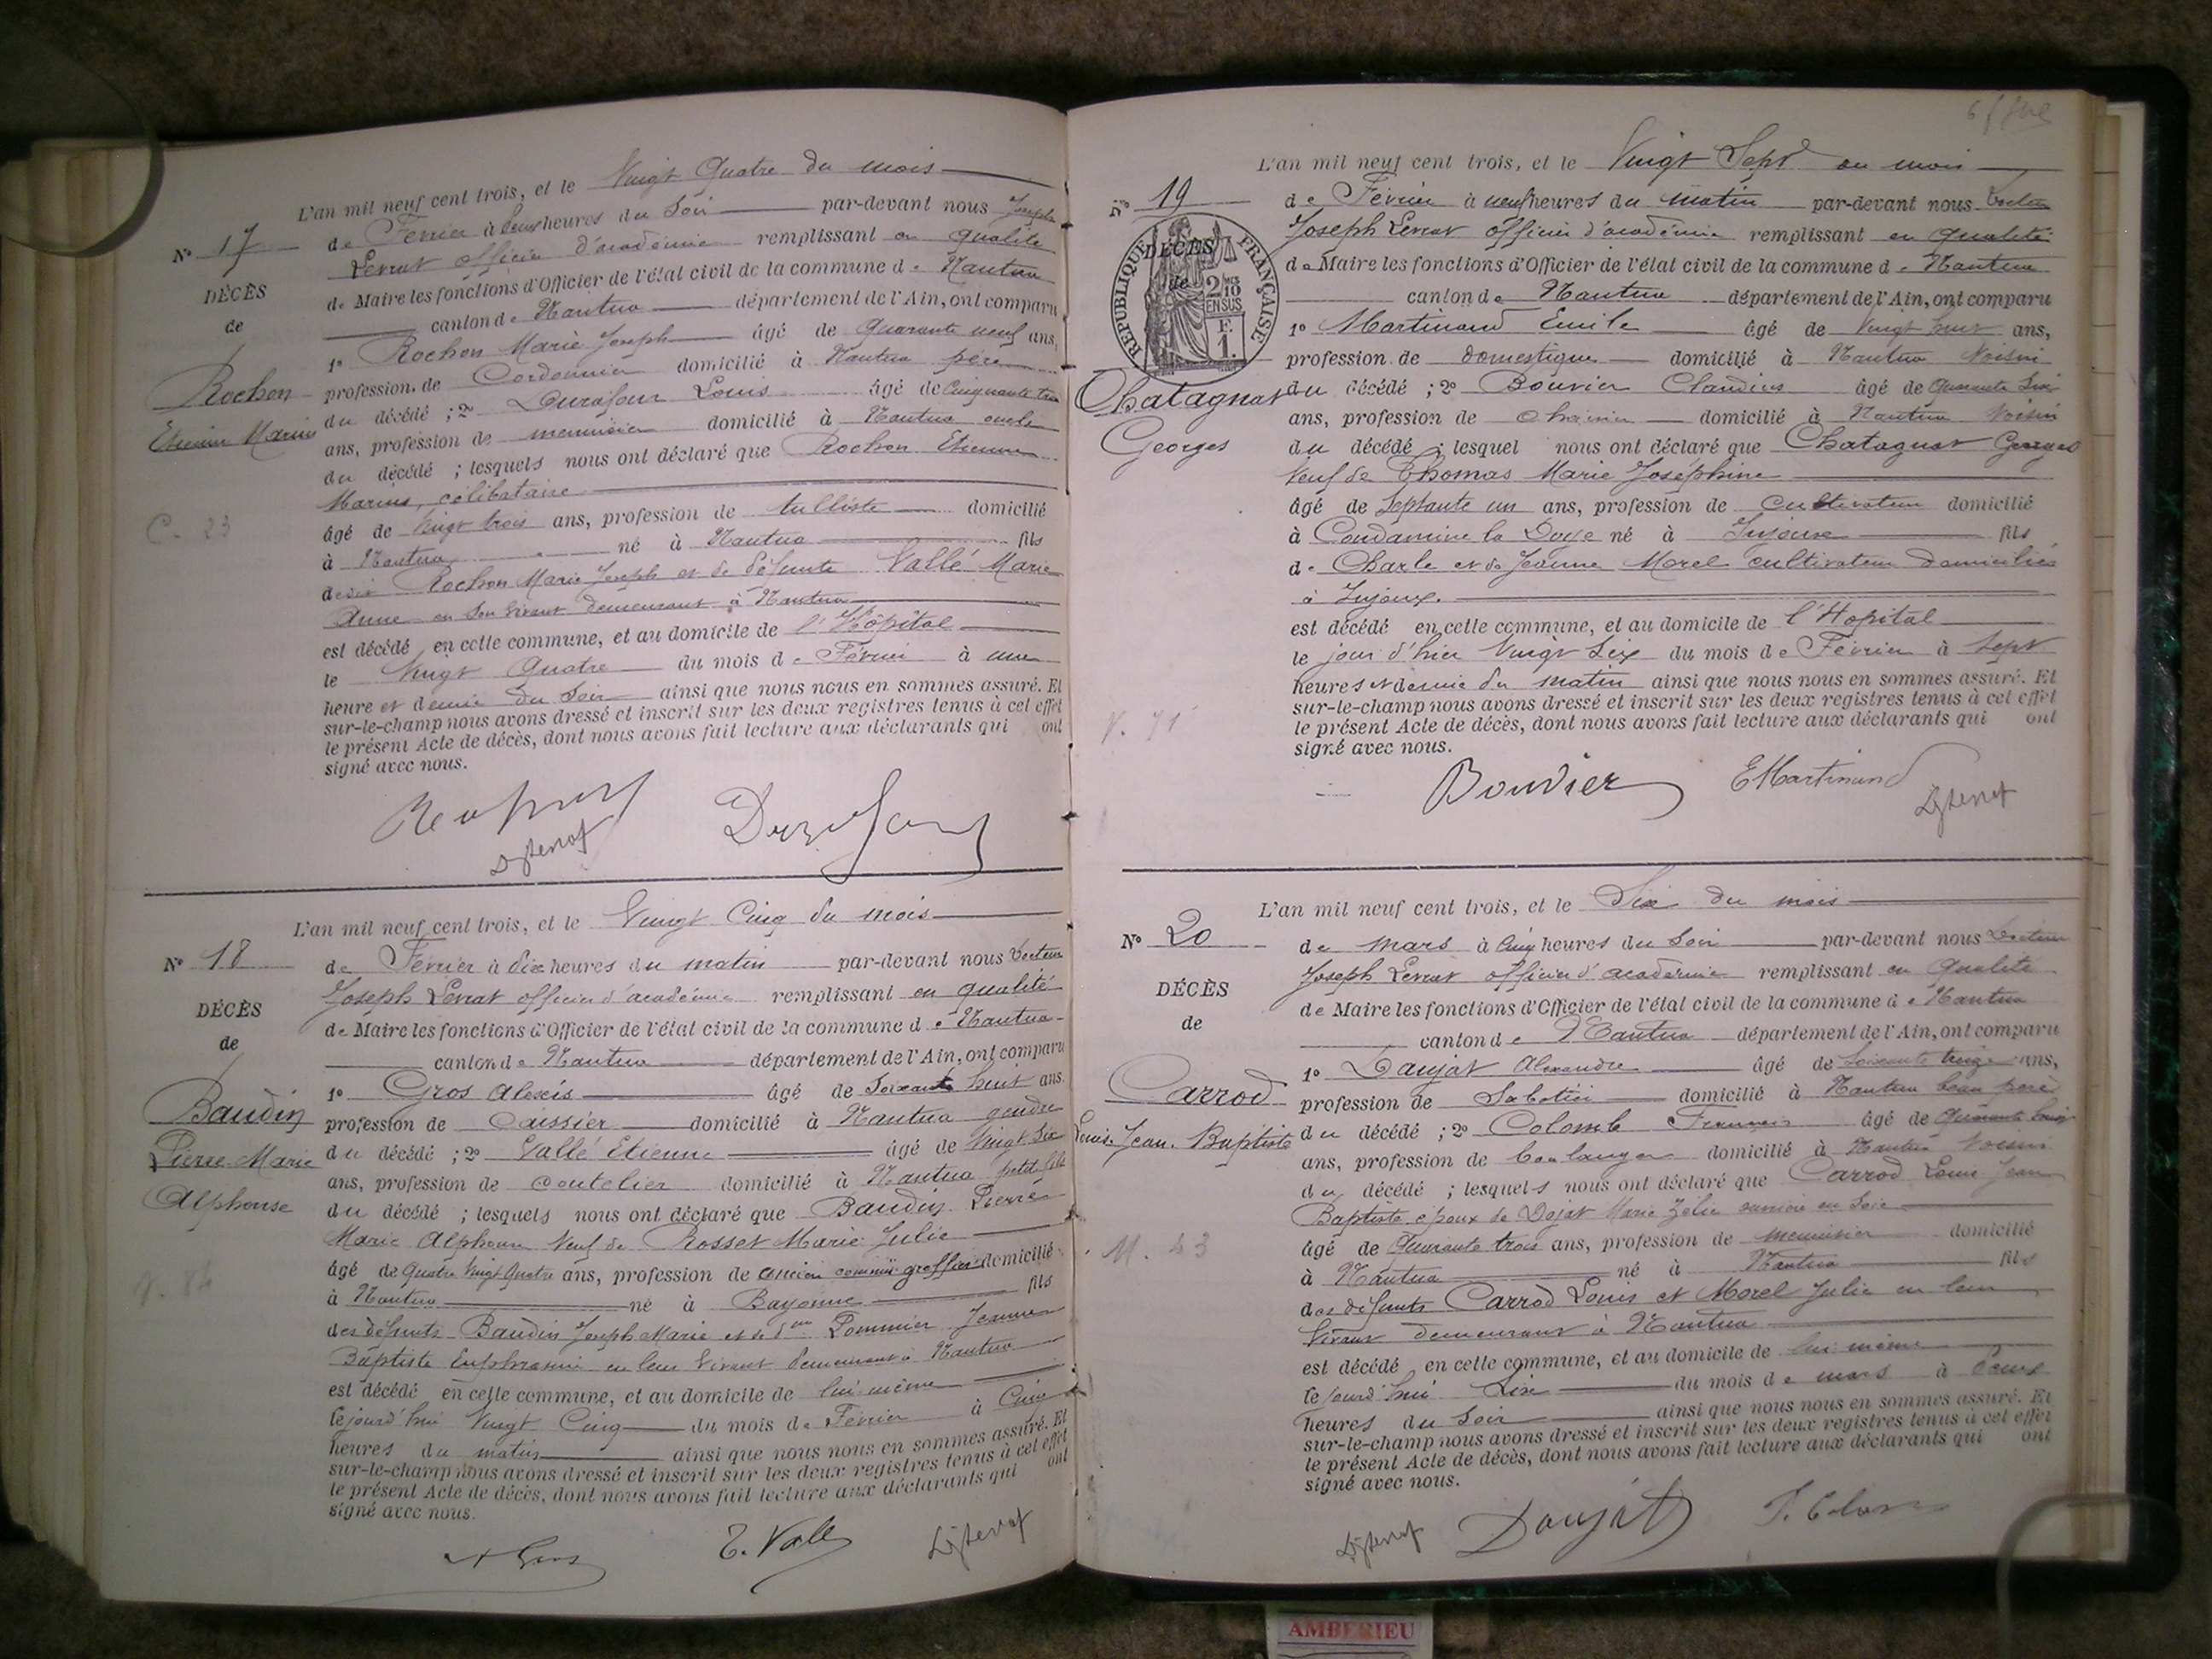 L'an mil neuf cent trois, et le Vingt Quatre du mois
N° 17
DÉCÈS
de
Rochon
Etienne Marius
C. 23
de Février à deux heures du Soir par-devant nous Joseph
Levrat officier d'académie remplissant en qualité
de Maire les fonctions d'Officier de l'état civil de la commune de Nantua
canton de Nantua département de l'Ain, ont comparu
1° Rochon Marie Joseph âgé de quarante neuf ans,
profession de Cordonnier domicilié à Nantua père
du décédé ; 2° Durafour Louis âgé de Cinquante trois
ans, profession de menuisier domicilié à Nantua oncle
du décédé ; lesquels nous ont déclaré que Rochon Etienne
Marius, célibataire
âgé de vingt trois ans, profession de tulliste domicilié
à Nantua né à Nantua fils
de Rochon Marie Joseph et de défunte Vallé Marie
Anne en son vivant demeurant à Nantua
est décédé en cette commune, et au domicile de l'Hôpital
le Vingt Quatre du mois de Février à une
heure et demie du Soir ainsi que nous nous en sommes assuré. Et
sur-le-champ nous avons dressé et inscrit sur les deux registres tenus à cet effet
le présent Acte de décès, dont nous avons fait lecture aux déclarants qui ont
signé avec nous.
L'an mil neuf cent trois, et le Vingt Cinq du mois
N° 18
DÉCÈS
de
Baudin
Pierre Marie
Alphonse
V. 84
de Février à dix heures du matin par-devant nous Docteur
Joseph Levrat officier d'académie remplissant en qualité
de Maire les fonctions d'Officier de l'état civil de la commune de Nantua
canton de Nantua département de l'Ain, ont comparu
1° Gros Alexis âgé de Soixante huit ans
profession de Caissier domicilié à Nantua gendre
du décédé ; 2° Vallé Etienne âgé de Vingt Six
ans, profession de coutelier domicilié à Nantua petit fils
du décédé ; lesquels nous ont déclaré que Baudin Pierre
Marie Alphonse Veuf de Rosset Marie Julie
âgé de Quatre Vingt Quatre ans, profession de ancien commis greffier domicilié
à Nantua né à Bayonne fils
des défunts Baudin Joseph Marie et de Pommier Jeanne
Baptiste Euphrasine en leur vivant demeurant à Nantua
est décédé en cette commune, et au domicile de lui même
le jourd'hui Vingt Cinq du mois de Février à Cinq
heures du matin ainsi que nous nous en sommes assuré. Et
sur-le-champ nous avons dressé et inscrit sur les deux registres tenus à cet effet
le présent Acte de décès, dont nous avons fait lecture aux déclarants qui ont
signé avec nous.
A Gros
E. Vallé
L'an mil neuf cent trois, et le Vingt Sept du mois
N° 19
RÉPUBLIQUE FRANÇAISE
DÉCÈS
de
2/10
EN SUS
F.
1.
Chatagnat
Georges
V. 71
de Février à neuf heures du matin par-devant nous Docteur
Joseph Levrat officier d'académie remplissant en qualité
de Maire les fonctions d'Officier de l'état civil de la commune de Nantua
canton de Nantua département de l'Ain, ont comparu
1° Martinand Emile âgé de Vingt huit ans,
profession de domestique domicilié à Nantua Voisin
du décédé ; 2° Bouvier Claudius âgé de Quarante Six
ans, profession de domicilié à Nantua Voisin
du décédé ; lesquel nous ont déclaré que Chatagnat Georges
Veuf de Thomas Marie Joséphine
âgé de Septante un ans, profession de Cultivateur domicilié
à Condamine la Doye né à Jujoux fils
de Charle et de Jeanne Morel cultivateurs domiciliés
à Jujoux.
est décédé en cette commune, et au domicile de l'Hopital
le jour d'hier Vingt Six du mois de Février à Sept
heures et demie du matin ainsi que nous nous en sommes assuré. Et
sur-le-champ nous avons dressé et inscrit sur les deux registres tenus à cet effet
le présent Acte de décès, dont nous avons fait lecture aux déclarants qui ont
signé avec nous.
Bouvier
E Martinand
L'an mil neuf cent trois, et le Six du mois
N° 20
DÉCÈS
de
Carrod
Louis Jean Baptiste
M. 43
de Mars à Cinq heures du Soir par-devant nous Docteur
Joseph Levrat officier d'académie remplissant en Qualité
de Maire les fonctions d'Officier de l'état civil de la commune de Nantua
canton de Nantua département de l'Ain, ont comparu
1° Daujat Alexandre âgé de Soixante treize ans,
profession de Sabotier domicilié à Nantua beau père
du décédé ; 2° Colomb François âgé de Quarante
ans, profession de boulanger domicilié à Nantua Voisin
du décédé ; lesquels nous ont déclaré que Carrod Louis Jean
Baptiste époux de Dojat Marie Zélie ouvrière en Soie
âgé de Quarante trois ans, profession de menuisier domicilié
à Nantua né à Nantua fils
des défunts Carrod Louis et Morel Julie en leur
Vivant demeurant à Nantua
est décédé en cette commune, et au domicile de lui même
le jourd'hui Six du mois de mars à deux
heures du Soir ainsi que nous nous en sommes assuré. Et
sur-le-champ nous avons dressé et inscrit sur les deux registres tenus à cet effet
le présent Acte de décès, dont nous avons fait lecture aux déclarants qui ont
signé avec nous.
Daujat
F. Colomb
AMBERIEU